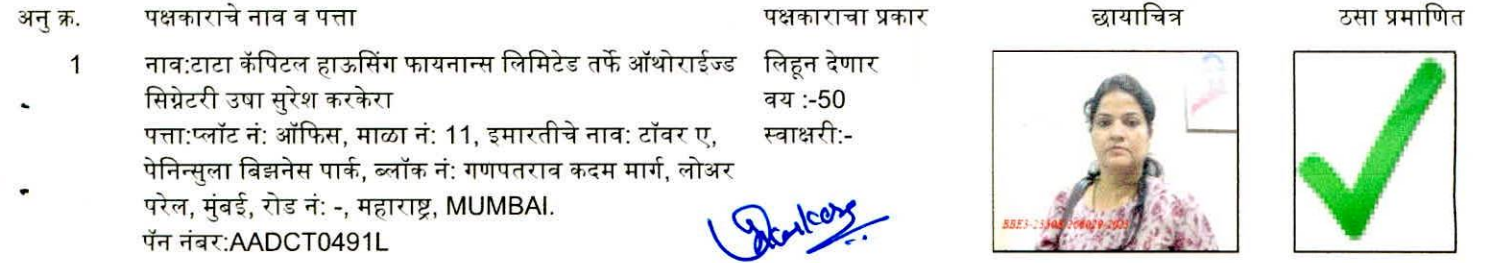 अनु क्र. पक्षकाराचे नाव व पत्ता पक्षकाराचा प्रकार छायाचित्र ठसा प्रमाणित
1 नाव:टाटा कॅपिटल हाऊसिंग फायनान्स लिमिटेड तर्फे ऑथोराईज्ड लिहून देणार
सिग्नेटरी उषा सुरेश करकेरा वय :-50
पत्ता:प्लॉट नं: ऑफिस, माळा नं: 11, इमारतीचे नाव: टॉवर ए, स्वाक्षरी:-
पेनिन्सुला बिझनेस पार्क, ब्लॉक नं: गणपतराव कदम मार्ग, लोअर
परेल, मुंबई, रोड नं: -, महाराष्ट्र, MUMBAI.
पॅन नंबर:AADCT0491L